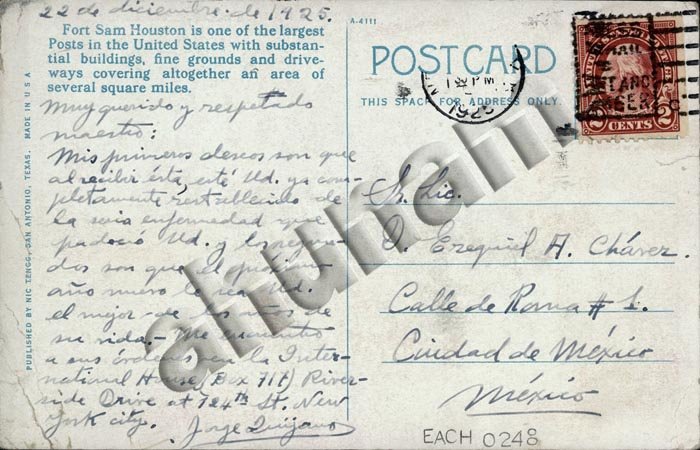 22 de diciembre de 1925.
Fort Sam Houston is one of the largest
Posts in the United States with substan-
tial buildings, fine grounds and drive-
ways covering altogether an area of
several square miles.
Muy querido y respetado
maestro:
Mis primeros deseos son que
al recibir ésta, esté Ud. ya com-
pletamente restablecido de
la seria enfermedad que
padeció Ud. y los segun-
dos son que el próximo
año nuevo le sea Ud.
el mejor de los años de
su vida. - Me encuentro
a sus órdenes en la Inter-
national House (Box 717) River-
side Drive at 124th St. New
York city. Jorge Quijano
PUBLISHED BY NIC TENGG, SAN ANTONIO, TEXAS. MADE IN U S A
A-4111
POST CARD
THIS SPACE FOR ADDRESS ONLY.
1925
PM
2 CENTS 2
Sr. Lic.
D. Ezequiel A. Chávez.
Calle de Roma # 1.
Ciudad de México
México
EACH 0248
ahunam